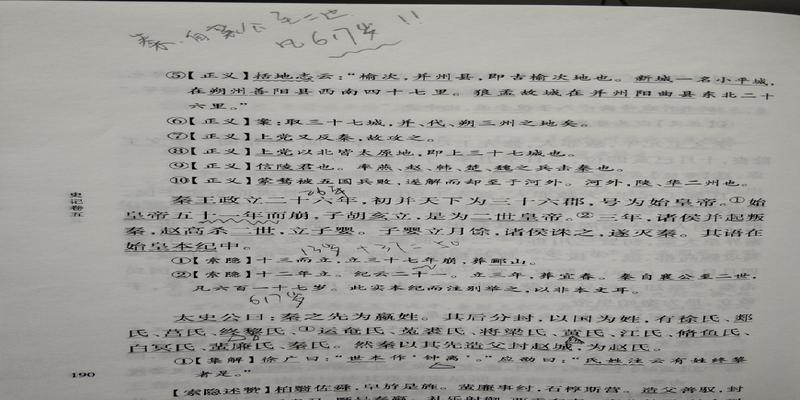 秦.自襄公至二世
凡617岁!!
⑤【正义】括地志云:“榆次,并州县,即古榆次地也。新城一名小平城,
在朔州善阳县西南四十七里。狼孟故城在并州阳曲县东北二十
六里。”
⑥【正义】案:取三十七城,并、代、朔三州之地矣。
⑦【正义】上党又反秦,故攻之。
⑧【正义】上党以北皆太原地,即上三十七城也。
⑨【正义】信陵君也。率燕、赵、韩、楚、魏之兵击秦也。
⑩【正义】蒙骜被五国兵败,遂解而却至于河外。河外,陕、华二州也。
秦王政立二十六年,初并天下为三十六郡,号为始皇帝。①始
皇帝五十一年而崩,子胡亥立,是为二世皇帝。②三年,诸侯并起叛
秦,赵高杀二世,立子婴。子婴立月馀,诸侯诛之,遂灭秦。其语在
始皇本纪中。
①【索隐】十三而立,立三十七年崩,葬郦山。
②【索隐】十二年立。纪云二十一。立三年,葬宜春。秦自襄公至二世,
凡六百一十七岁。此实本纪而注别举之,以非本文耳。
617岁
太史公曰:秦之先为嬴姓。其后分封,以国为姓,有徐氏、郯
氏、莒氏、终黎氏、①运奄氏、菟裘氏、将梁氏、黄氏、江氏、脩鱼氏、
白冥氏、蜚廉氏、秦氏。然秦以其先造父封赵城,为赵氏。
①【集解】徐广曰:“世本作‘钟离’。”应劭曰:“氏姓注云有姓终黎
者是。”
【索隐述赞】柏翳佐舜,皁斿是旌。蜚廉事纣,石椁斯营。造父善驭,封
史记卷五
190